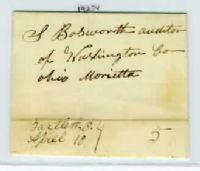 19274
S Bosworth auditor
of Washington Co
ohio Marietta
Bartlett O.
April 10
5